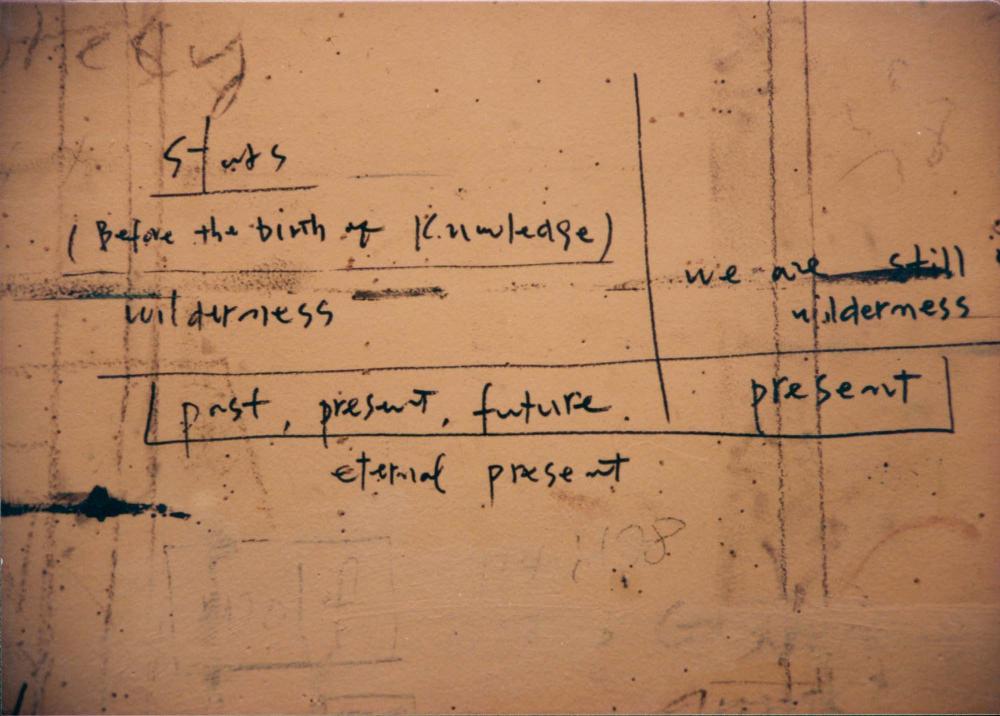 Starts
(Before the birth of Knowledge)
wilderness
we are still
wilderness
past, present, future.
present
eternal present